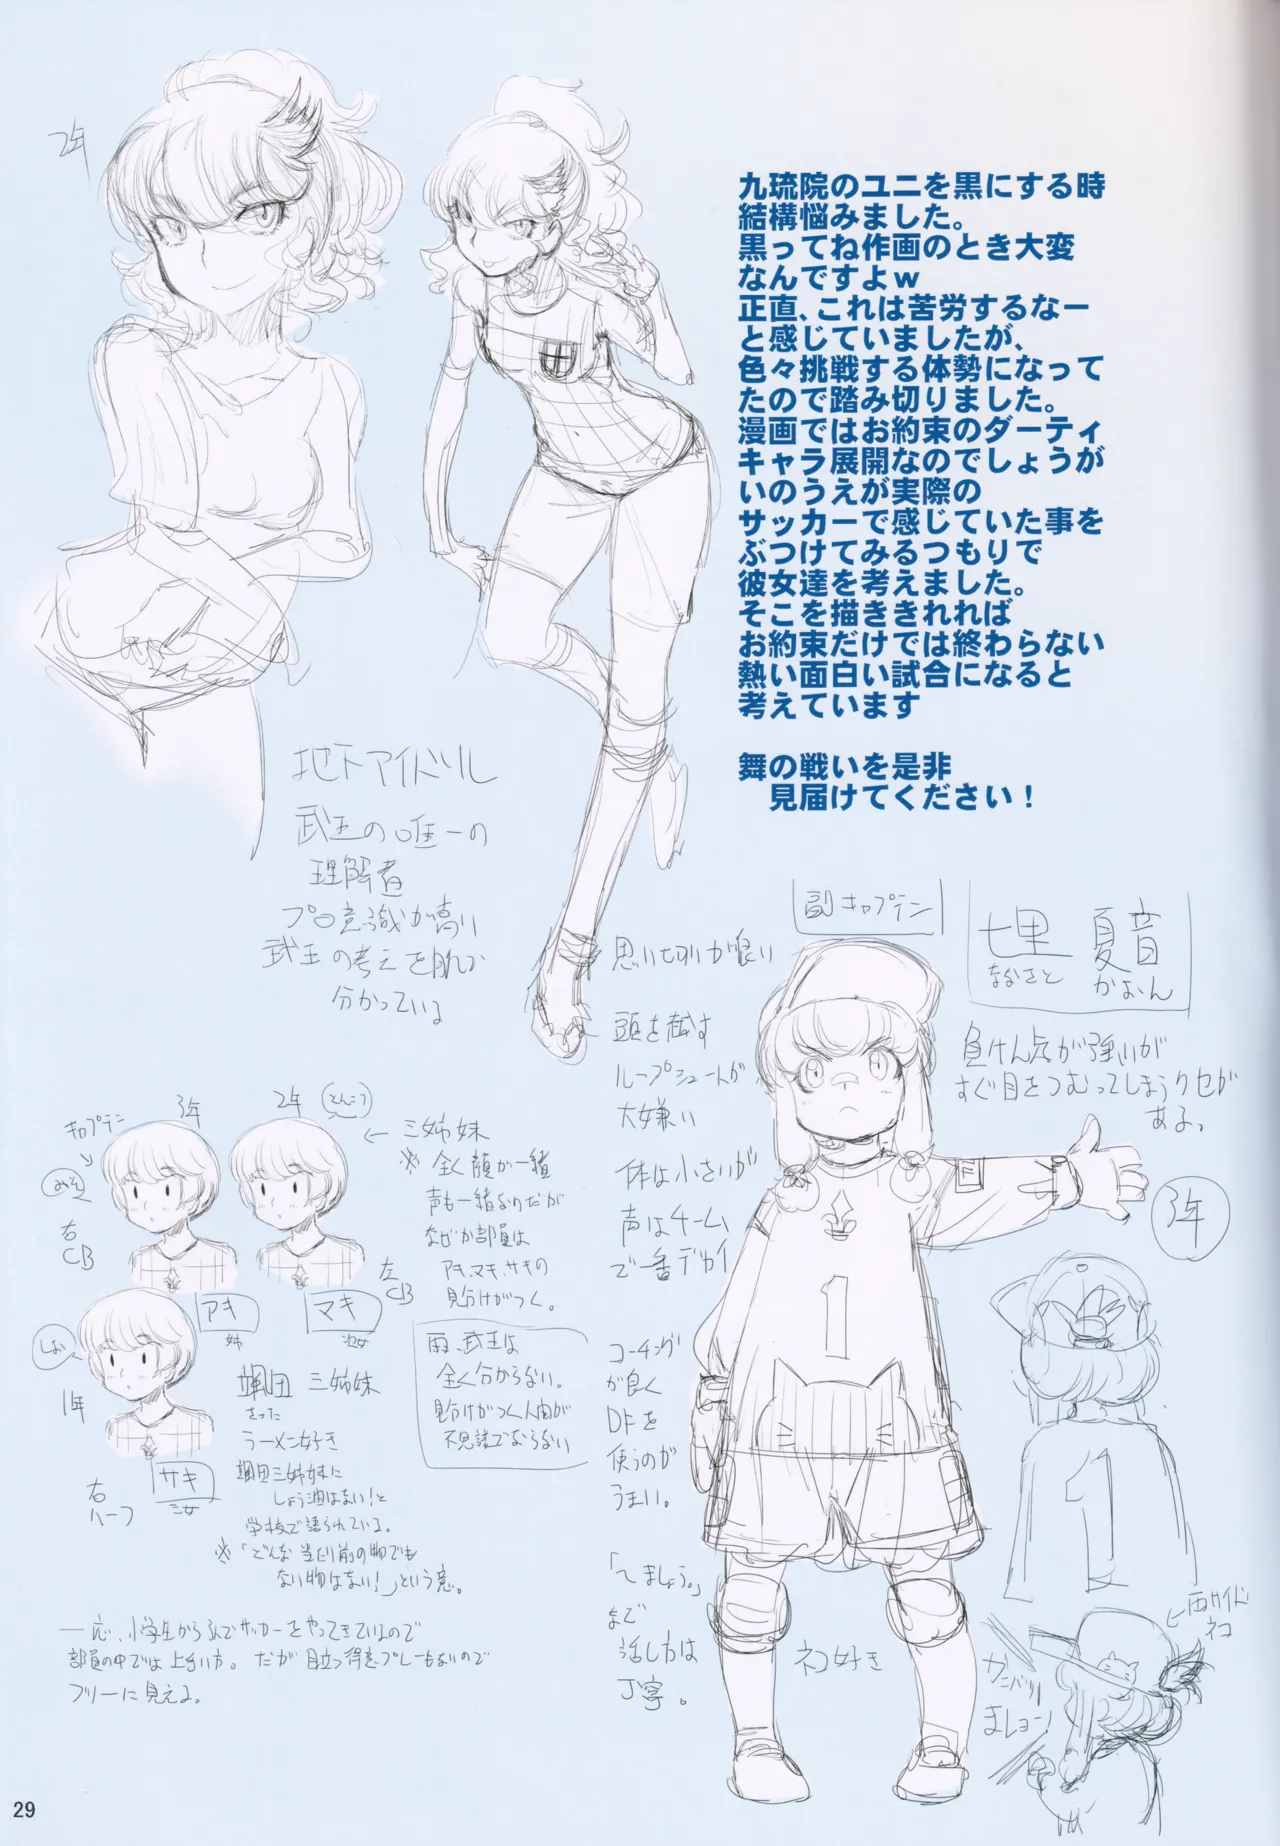 九琉院のユニを黒にする時
結構悩みました。
黒ってね作画のとき大変
なんですよｗ
正直、これは苦労するなー
と感じていましたが、
色々挑戦する体勢になって
たので踏み切りました。
漫画ではお約束のダーティ
キャラ展開なのでしょうが
いのうえが実際の
サッカーで感じていた事を
ぶつけてみるつもりで
彼女達を考えました。
そこを描ききれれば
お約束だけでは終わらない
熱い面白い試合になると
考えています
舞の戦いを是非
見届けてください！
2年
地下アイドル
武王の唯一の
理解者
プロ意識が高い
武王の考えを肌で
分かっている
副キャプテン
七里 夏音
ななさと かおん
負けん気が強いが
すぐ目をつむってしまうクセが
ある。
3年
思い切りが良い
頭を越す
ループシュートが
大嫌い
体は小さいが
声はチーム
で一番デカイ
コーチング
が良く
DFを
使うのが
うまい。
「〜ましょう。」
まで
話し方は
丁寧。
ネコ好き
1
1
←両サイド
ネコ
ガンバリ
ましょー!
キャプテン
3年
2年
とんこつ
みそ
右
CB
左
CB
アキ
姉
マキ
次女
しお
1年
サキ
三女
右
ハーフ
← 三姉妹
※ 全く顔が一緒
声も一緒なのだが
なぜか部員は
アキ、マキ、サキの
見分けがつく。
雨、武王は
全く分からない。
見分けがつく人間が
不思議でならない
颯田 三姉妹
さった
ラーメン好き
颯田三姉妹に
しょう油はない!と
学校で語られている。
※「どんな当たり前の物でも
ない物はない!」という意。
一応、小学生から3人でサッカーをやってきているので
部員の中では上手い方。だが目立つ得意プレーもないので
フリーに見える。
29